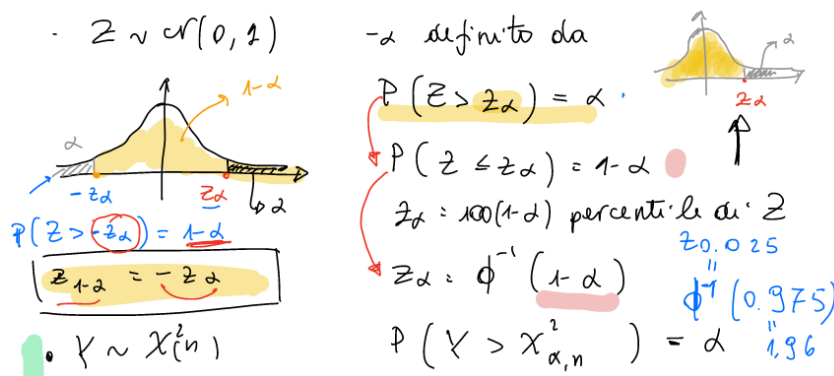 · Z ~ N(0, 1)
α
1-α
-zα
zα
α
P(Z > -zα) = 1-α
z1-α = -zα
• Y ~ χ²(n)
-α definito da
P(Z > zα) = α
P(Z ≤ zα) = 1-α
zα = 100(1-α) percentile di Z
zα = ϕ⁻¹(1-α)
P(Y > χ²α,n) = α
α
zα
z0.025
=
ϕ⁻¹(0.975)
=
1,96